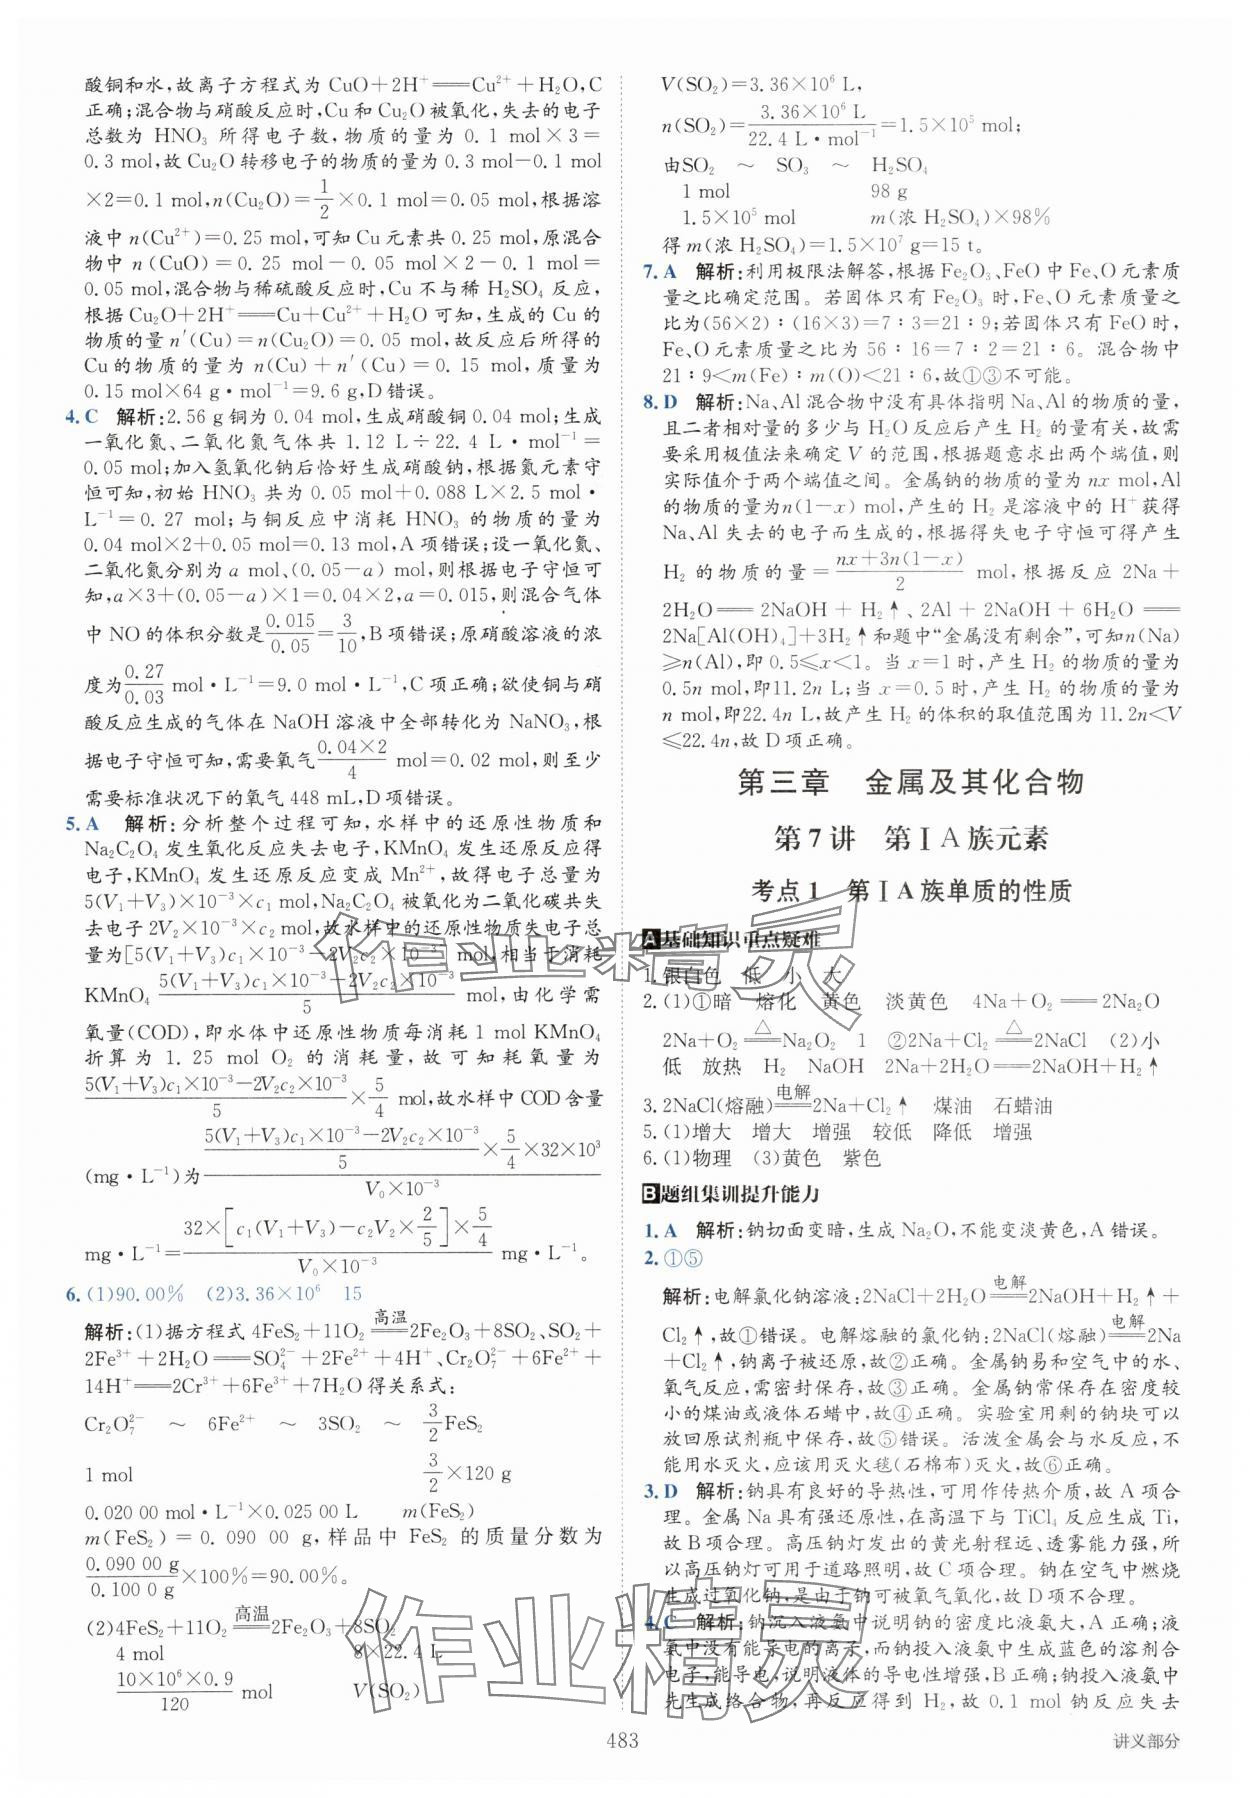 酸铜和水,故离子方程式为 CuO+2H⁺══Cu²⁺+H₂O,C
正确;混合物与硝酸反应时,Cu 和 Cu₂O 被氧化,失去的电子
总数为 HNO₃ 所得电子数,物质的量为 0.1 mol×3=
0.3 mol,故 Cu₂O 转移电子的物质的量为 0.3 mol−0.1 mol
×2=0.1 mol,n(Cu₂O)=1/2×0.1 mol=0.05 mol,根据溶
液中 n(Cu²⁺)=0.25 mol,可知 Cu 元素共 0.25 mol,原混合
物中 n(CuO)=0.25 mol−0.05 mol×2−0.1 mol=
0.05 mol,混合物与稀硫酸反应时,Cu 不与稀 H₂SO₄ 反应,
根据 Cu₂O+2H⁺══Cu+Cu²⁺+H₂O 可知,生成的 Cu 的
物质的量 n′(Cu)=n(Cu₂O)=0.05 mol,故反应后所得的
Cu 的物质的量为 n(Cu)+n′(Cu)=0.15 mol,质量为
0.15 mol×64 g·mol⁻¹=9.6 g,D 错误。
4. C 解析:2.56 g 铜为 0.04 mol,生成硝酸铜 0.04 mol;生成
一氧化氮、二氧化氮气体共 1.12 L÷22.4 L·mol⁻¹=
0.05 mol;加入氢氧化钠后恰好生成硝酸钠,根据氮元素守
恒可知,初始 HNO₃ 共为 0.05 mol+0.088 L×2.5 mol·
L⁻¹=0.27 mol;与铜反应中消耗 HNO₃ 的物质的量为
0.04 mol×2+0.05 mol=0.13 mol,A 项错误;设一氧化氮、
二氧化氮分别为 a mol、(0.05−a) mol,则根据电子守恒可
知,a×3+(0.05−a)×1=0.04×2,a=0.015,则混合气体
中 NO 的体积分数是0.015/0.05=3/10,B 项错误;原硝酸溶液的浓
度为0.27/0.03 mol·L⁻¹=9.0 mol·L⁻¹,C 项正确;欲使铜与硝
酸反应生成的气体在 NaOH 溶液中全部转化为 NaNO₃,根
据电子守恒可知,需要氧气(0.04×2)/4 mol=0.02 mol,则至少
需要标准状况下的氧气 448 mL,D 项错误。
5. A 解析:分析整个过程可知,水样中的还原性物质和
Na₂C₂O₄ 发生氧化反应失去电子,KMnO₄ 发生还原反应得
电子,KMnO₄ 发生还原反应变成 Mn²⁺,故得电子总量为
5(V₁+V₃)×10⁻³×c₁ mol,Na₂C₂O₄ 被氧化为二氧化碳共失
去电子 2V₂×10⁻³×c₂ mol,故水样中的还原性物质失电子总
量为[5(V₁+V₃)c₁×10⁻³−2V₂c₂×10⁻³] mol,相当于消耗
KMnO₄ (5(V₁+V₃)c₁×10⁻³−2V₂c₂×10⁻³)/5 mol,由化学需
氧量(COD),即水体中还原性物质每消耗 1 mol KMnO₄
折算为 1.25 mol O₂ 的消耗量,故可知耗氧量为
(5(V₁+V₃)c₁×10⁻³−2V₂c₂×10⁻³)/5×5/4 mol,故水样中 COD 含量
(mg·L⁻¹)为((5(V₁+V₃)c₁×10⁻³−2V₂c₂×10⁻³)/5×5/4×32×10³)/(V₀×10⁻³)
mg·L⁻¹=(32×[c₁(V₁+V₃)−c₂V₂×2/5]×5/4)/(V₀×10⁻³) mg·L⁻¹。
6. (1)90.00% (2)3.36×10⁶ 15
解析:(1)据方程式 4FeS₂+11O₂ 高温══ 2Fe₂O₃+8SO₂、SO₂+
2Fe³⁺+2H₂O══SO₄²⁻+2Fe²⁺+4H⁺、Cr₂O₇²⁻+6Fe²⁺+
14H⁺══2Cr³⁺+6Fe³⁺+7H₂O 得关系式:
Cr₂O₇²⁻ ~ 6Fe²⁺ ~ 3SO₂ ~ 3/2FeS₂
1 mol 3/2×120 g
0.020 00 mol·L⁻¹×0.025 00 L m(FeS₂)
m(FeS₂)=0.090 00 g,样品中 FeS₂ 的质量分数为
0.090 00 g/0.100 0 g×100%=90.00%。
(2)4FeS₂+11O₂ 高温══ 2Fe₂O₃+8SO₂
4 mol 8×22.4 L
(10×10⁶×0.9)/120 mol V(SO₂)
V(SO₂)=3.36×10⁶ L,
n(SO₂)=3.36×10⁶ L/22.4 L·mol⁻¹=1.5×10⁵ mol;
由SO₂ ~ SO₃ ~ H₂SO₄
1 mol 98 g
1.5×10⁵ mol m(浓 H₂SO₄)×98%
得 m(浓 H₂SO₄)=1.5×10⁷ g=15 t。
7. A 解析:利用极限法解答,根据 Fe₂O₃、FeO 中 Fe、O 元素质
量之比确定范围。若固体只有 Fe₂O₃ 时,Fe、O 元素质量之
比为(56×2)∶(16×3)=7∶3=21∶9;若固体只有 FeO 时,
Fe、O 元素质量之比为 56∶16=7∶2=21∶6。混合物中
21∶9<m(Fe)∶m(O)<21∶6,故①③不可能。
8. D 解析:Na、Al 混合物中没有具体指明 Na、Al 的物质的量,
且二者相对量的多少与 H₂O 反应后产生 H₂ 的量有关,故需
要采用极值法来确定 V 的范围,根据题意求出两个端值,则
实际值介于两个端值之间。金属钠的物质的量为 nx mol,Al
的物质的量为n(1−x) mol,产生的 H₂ 是溶液中的 H⁺获得
Na、Al 失去的电子而生成的,根据得失电子守恒可得产生
H₂ 的物质的量=(nx+3n(1−x))/2 mol,根据反应 2Na+
2H₂O══2NaOH+H₂↑、2Al+2NaOH+6H₂O══
2Na[Al(OH)₄]+3H₂↑和题中“金属没有剩余”,可知n(Na)
≥n(Al),即 0.5≤x<1。当 x=1 时,产生 H₂ 的物质的量为
0.5n mol,即11.2n L;当 x=0.5 时,产生 H₂ 的物质的量为
n mol,即22.4n L,故产生 H₂ 的体积的取值范围为 11.2n<V
≤22.4n,故 D 项正确。
第三章 金属及其化合物
第 7 讲 第ⅠA 族元素
考点 1 第ⅠA 族单质的性质
A 基础知识重点疑难
1. 银白色 低 小 大
2. (1)①暗 熔化 黄色 淡黄色 4Na+O₂══2Na₂O
2Na+O₂ △══ Na₂O₂ 1 ②2Na+Cl₂ △══ 2NaCl (2)小
低 放热 H₂ NaOH 2Na+2H₂O══2NaOH+H₂↑
3. 2NaCl(熔融) 电解══ 2Na+Cl₂↑ 煤油 石蜡油
5. (1)增大 增大 增强 较低 降低 增强
6. (1)物理 (3)黄色 紫色
B 题组集训提升能力
1. A 解析:钠切面变暗,生成 Na₂O,不能变淡黄色,A 错误。
2. ①⑤
解析:电解氯化钠溶液:2NaCl+2H₂O 电解══ 2NaOH+H₂↑+
Cl₂↑,故①错误。电解熔融的氯化钠:2NaCl(熔融) 电解══ 2Na
+Cl₂↑,钠离子被还原,故②正确。金属钠易和空气中的水、
氧气反应,需密封保存,故③正确。金属钠常保存在密度较
小的煤油或液体石蜡中,故④正确。实验室用剩的钠块可以
放回原试剂瓶中保存,故⑤错误。活泼金属会与水反应,不
能用水灭火,应该用灭火毯(石棉布)灭火,故⑥正确。
3. D 解析:钠具有良好的导热性,可用作传热介质,故 A 项合
理。金属 Na 具有强还原性,在高温下与 TiCl₄ 反应生成 Ti,
故 B 项合理。高压钠灯发出的黄光射程远、透雾能力强,所
以高压钠灯可用于道路照明,故 C 项合理。钠在空气中燃烧
生成过氧化钠,是由于钠可被氧气氧化,故 D 项不合理。
4. C 解析:钠沉入液氨中说明钠的密度比液氨大,A 正确;液
氨中没有能导电的离子,而钠投入液氨中生成蓝色的溶剂合
电子,能导电,说明液体的导电性增强,B 正确;钠投入液氨中
先生成络合物,再反应得到 H₂,故 0.1 mol 钠反应失去
483
讲义部分
作业精灵
作业精灵